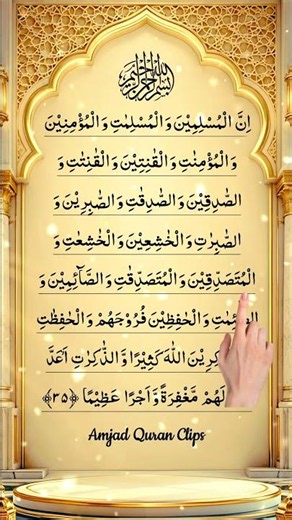 بسم الله الرحمن الرحيم
اِنَّ الْمُسْلِمِيْنَ وَ الْمُسْلِمٰتِ وَ الْمُؤْمِنِيْنَ
وَ الْمُؤْمِنٰتِ وَ الْقٰنِتِيْنَ وَ الْقٰنِتٰتِ وَ
الصّٰدِقِيْنَ وَ الصّٰدِقٰتِ وَ الصّٰبِرِيْنَ وَ
الصّٰبِرٰتِ وَ الْخٰشِعِيْنَ وَ الْخٰشِعٰتِ وَ
الْمُتَصَدِّقِيْنَ وَ الْمُتَصَدِّقٰتِ وَ الصَّآئِمِيْنَ وَ
وَ الْحٰفِظِيْنَ فُرُوْجَهُمْ وَ الْحٰفِظٰتِ
اللّٰهَ كَثِيْرًا وَّ الذّٰكِرٰتِ اَعَدَّ
لَهُمْ مَّغْفِرَةً وَّ اَجْرًا عَظِيْمًا ﴿۳۵﴾
Amjad Quran Clips